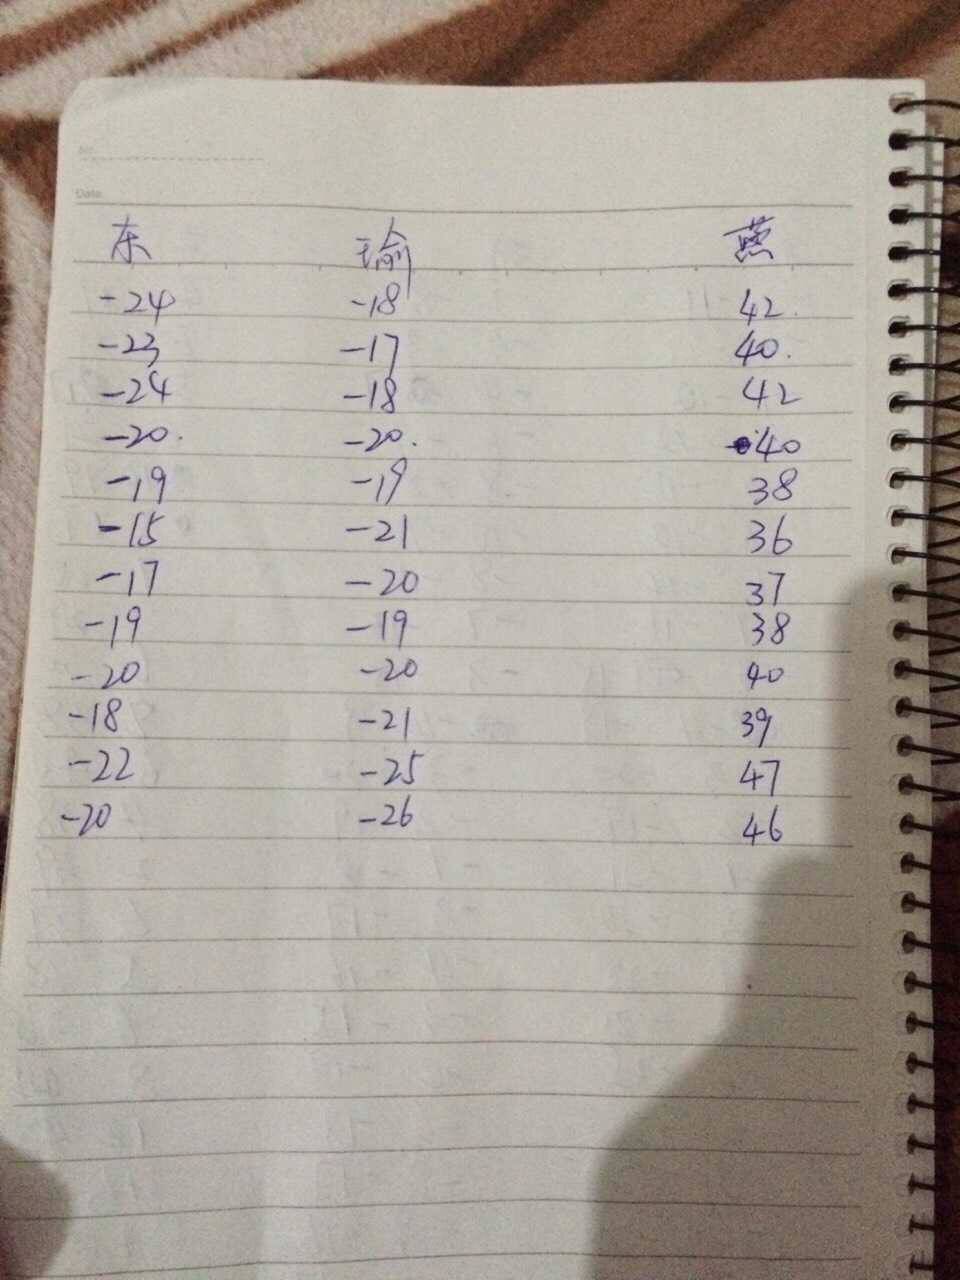 No.
Date.
东 瑜 燕
-24 -18 42.
-23 -17 40.
-24 -18 42
-20. -20. 40
-19 -19 38
-15 -21 36
-17 -20 37
-19 -19 38
-20 -20 40
-18 -21 39
-22 -25 47
-20 -26 46